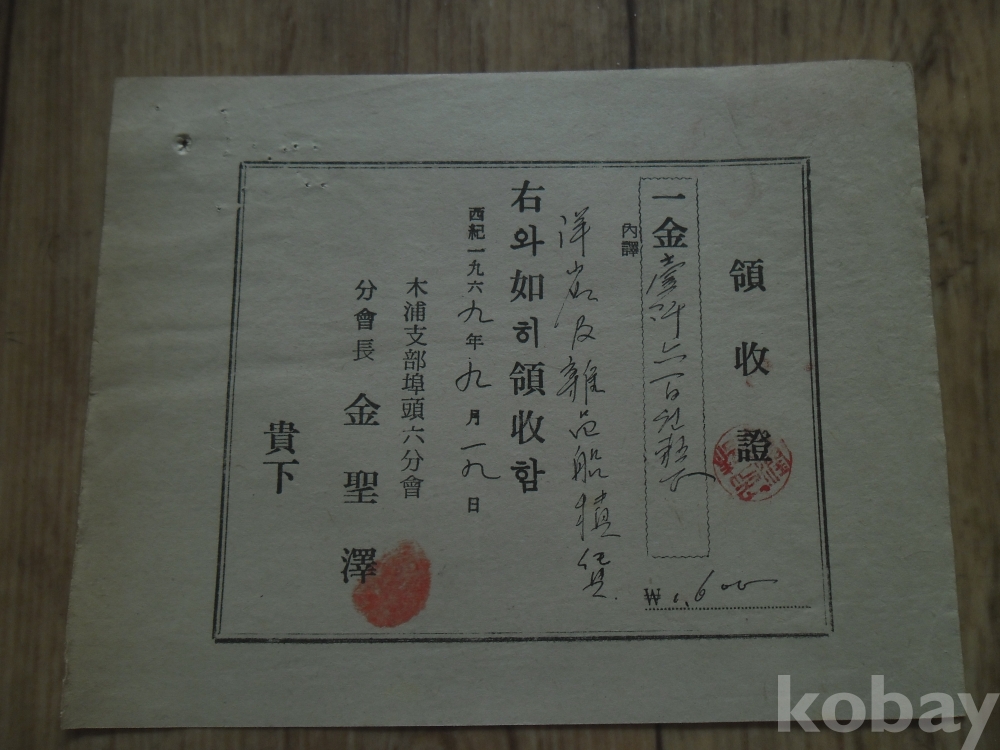 領收證
一金壹阡六百원整
₩1,600
內譯
洋灰及雜品船積賃
右와如히領收함
西紀一九六九年九月一九日
木浦支部埠頭六分會
分會長 金聖澤
貴下
kobay